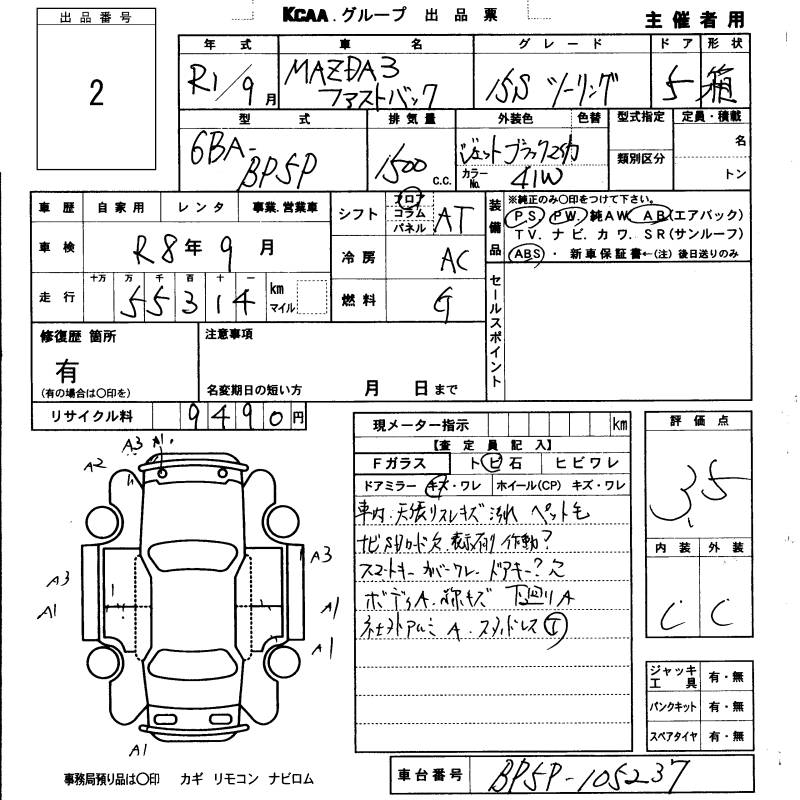 KCAA.グループ 出品票
主催者用
出品番号
2
年式 車名 グレード ドア 形状
R1/9月 MAZDA3 ファストバック 15S ツーリング 5 箱
型式 排気量 外装色 色替 型式指定 定員・積載
6BA-BP5P 1500 c.c. ジェットブラック カラーNo. 41W 類別区分 名 トン
車歴 自家用 レンタ 事業.営業車
車検 R8年9月
走行 十万 万 千 百 十 一
55314 km マイル
シフト フロア コラム パネル AT
冷房 AC
燃料 G
装備品
※純正のみ〇印をつけて下さい。
P.S. P.W. 純AW AB(エアバック)
TV. ナビ. カワ. SR(サンルーフ)
ABS ・ 新車保証書←(注) 後日送りのみ
セールスポイント
修復歴 箇所
有
(有の場合は〇印を)
注意事項
名変期日の短い方 月 日まで
リサイクル料 9490円
現メーター指示 km
【査定員記入】
Fガラス トビ石 ヒビワレ
ドアミラー キズ・ワレ ホイール(CP) キズ・ワレ
車内.天張リスレキズ 汚れ ペット毛
ナビSDカード欠 作動?
スマートキー カバーワレ. ドアキー?欠
ボディA. キズ 下廻リA
アルミ A. スタッドレス
評価点
3.5
内装 外装
C C
ジャッキ 工具 有・無
パンクキット 有・無
スペアタイヤ 有・無
A3 A1.
A2
A3
A1
A3
A1
A1
A1
事務局預り品は〇印 カギ リモコン ナビロム
車台番号 BP5P-105237